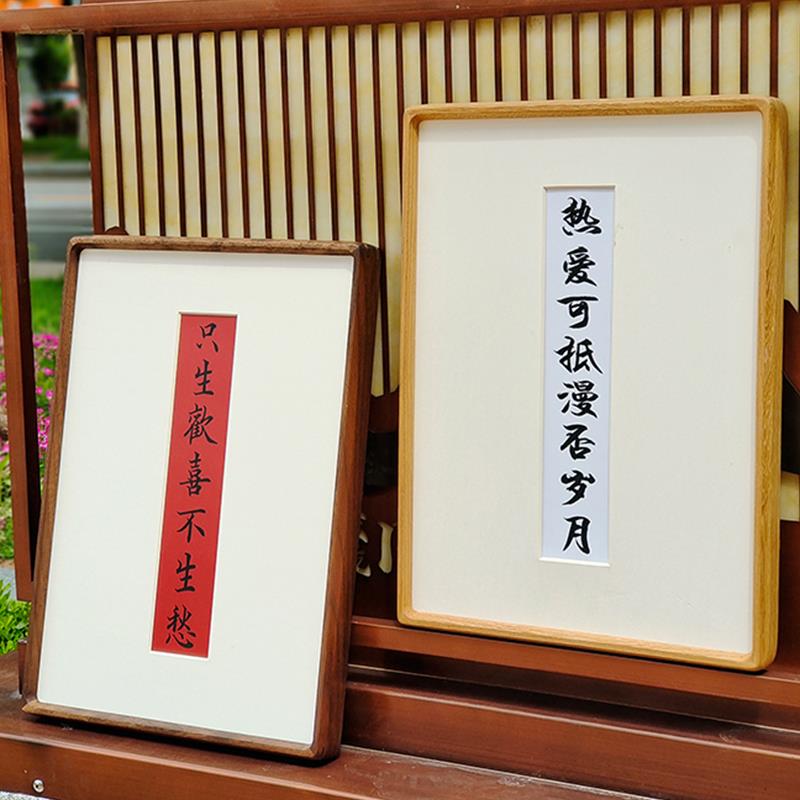 只生歡喜不生愁
热爱可抵漫否岁月